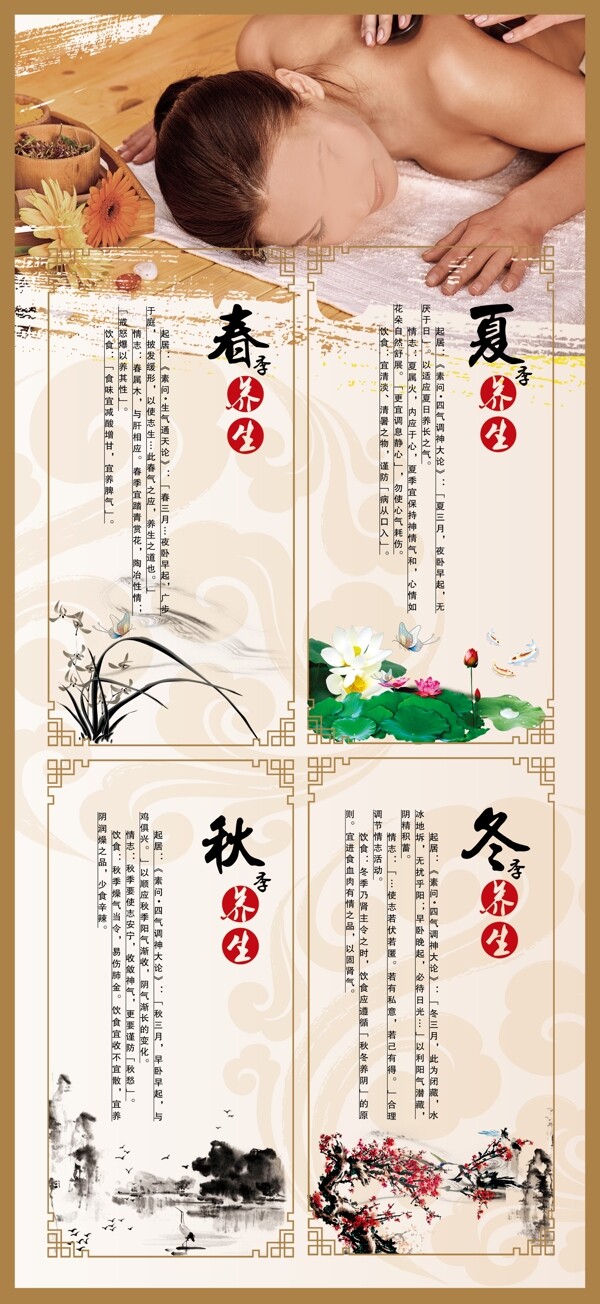 春季养生
起居：《素问·生气通天论》：「春三月…夜卧早起，广步
于庭，披发缓形，以使志生…此春气之应，养生之道也。」
情志：春属木，与肝相应。春季宜踏青赏花，陶冶性情；
「戒怒爆以养其性」。
饮食：「食味宜减酸增甘，宜养脾气」。
夏季养生
起居：《素问·四气调神大论》：「夏三月，夜卧早起，无
厌于日」。以适应夏日养长之气。
情志：夏属火，内应于心，夏季宜保持神情气和，心情如
花朵自然舒展。「更宜调息静心」，勿使心气耗伤。
饮食：宜清淡、清暑之物，谨防「病从口入」。
秋季养生
起居：《素问·四气调神大论》：「秋三月，早卧早起，与
鸡俱兴。」以顺应秋季阳气渐收，阴气渐长的变化。
情志：秋季要使志安宁，收敛神气，更要谨防「秋愁」。
饮食：秋季燥气当令，易伤肺金。饮食宜收不宜散，宜养
阴润燥之品，少食辛辣。
冬季养生
起居：《素问·四气调神大论》：「冬三月，此为闭藏，水
冰地坼，无扰乎阳；早卧晚起，必待日光…」以利阳气潜藏，
阴精积蓄。
情志：「…使志若伏若匿。若有私意，若己有得。」合理
调节情志活动。
饮食：冬季乃肾主令之时，饮食应遵循「秋冬养阴」的原
则。宜进食血肉有情之品，以固肾气。